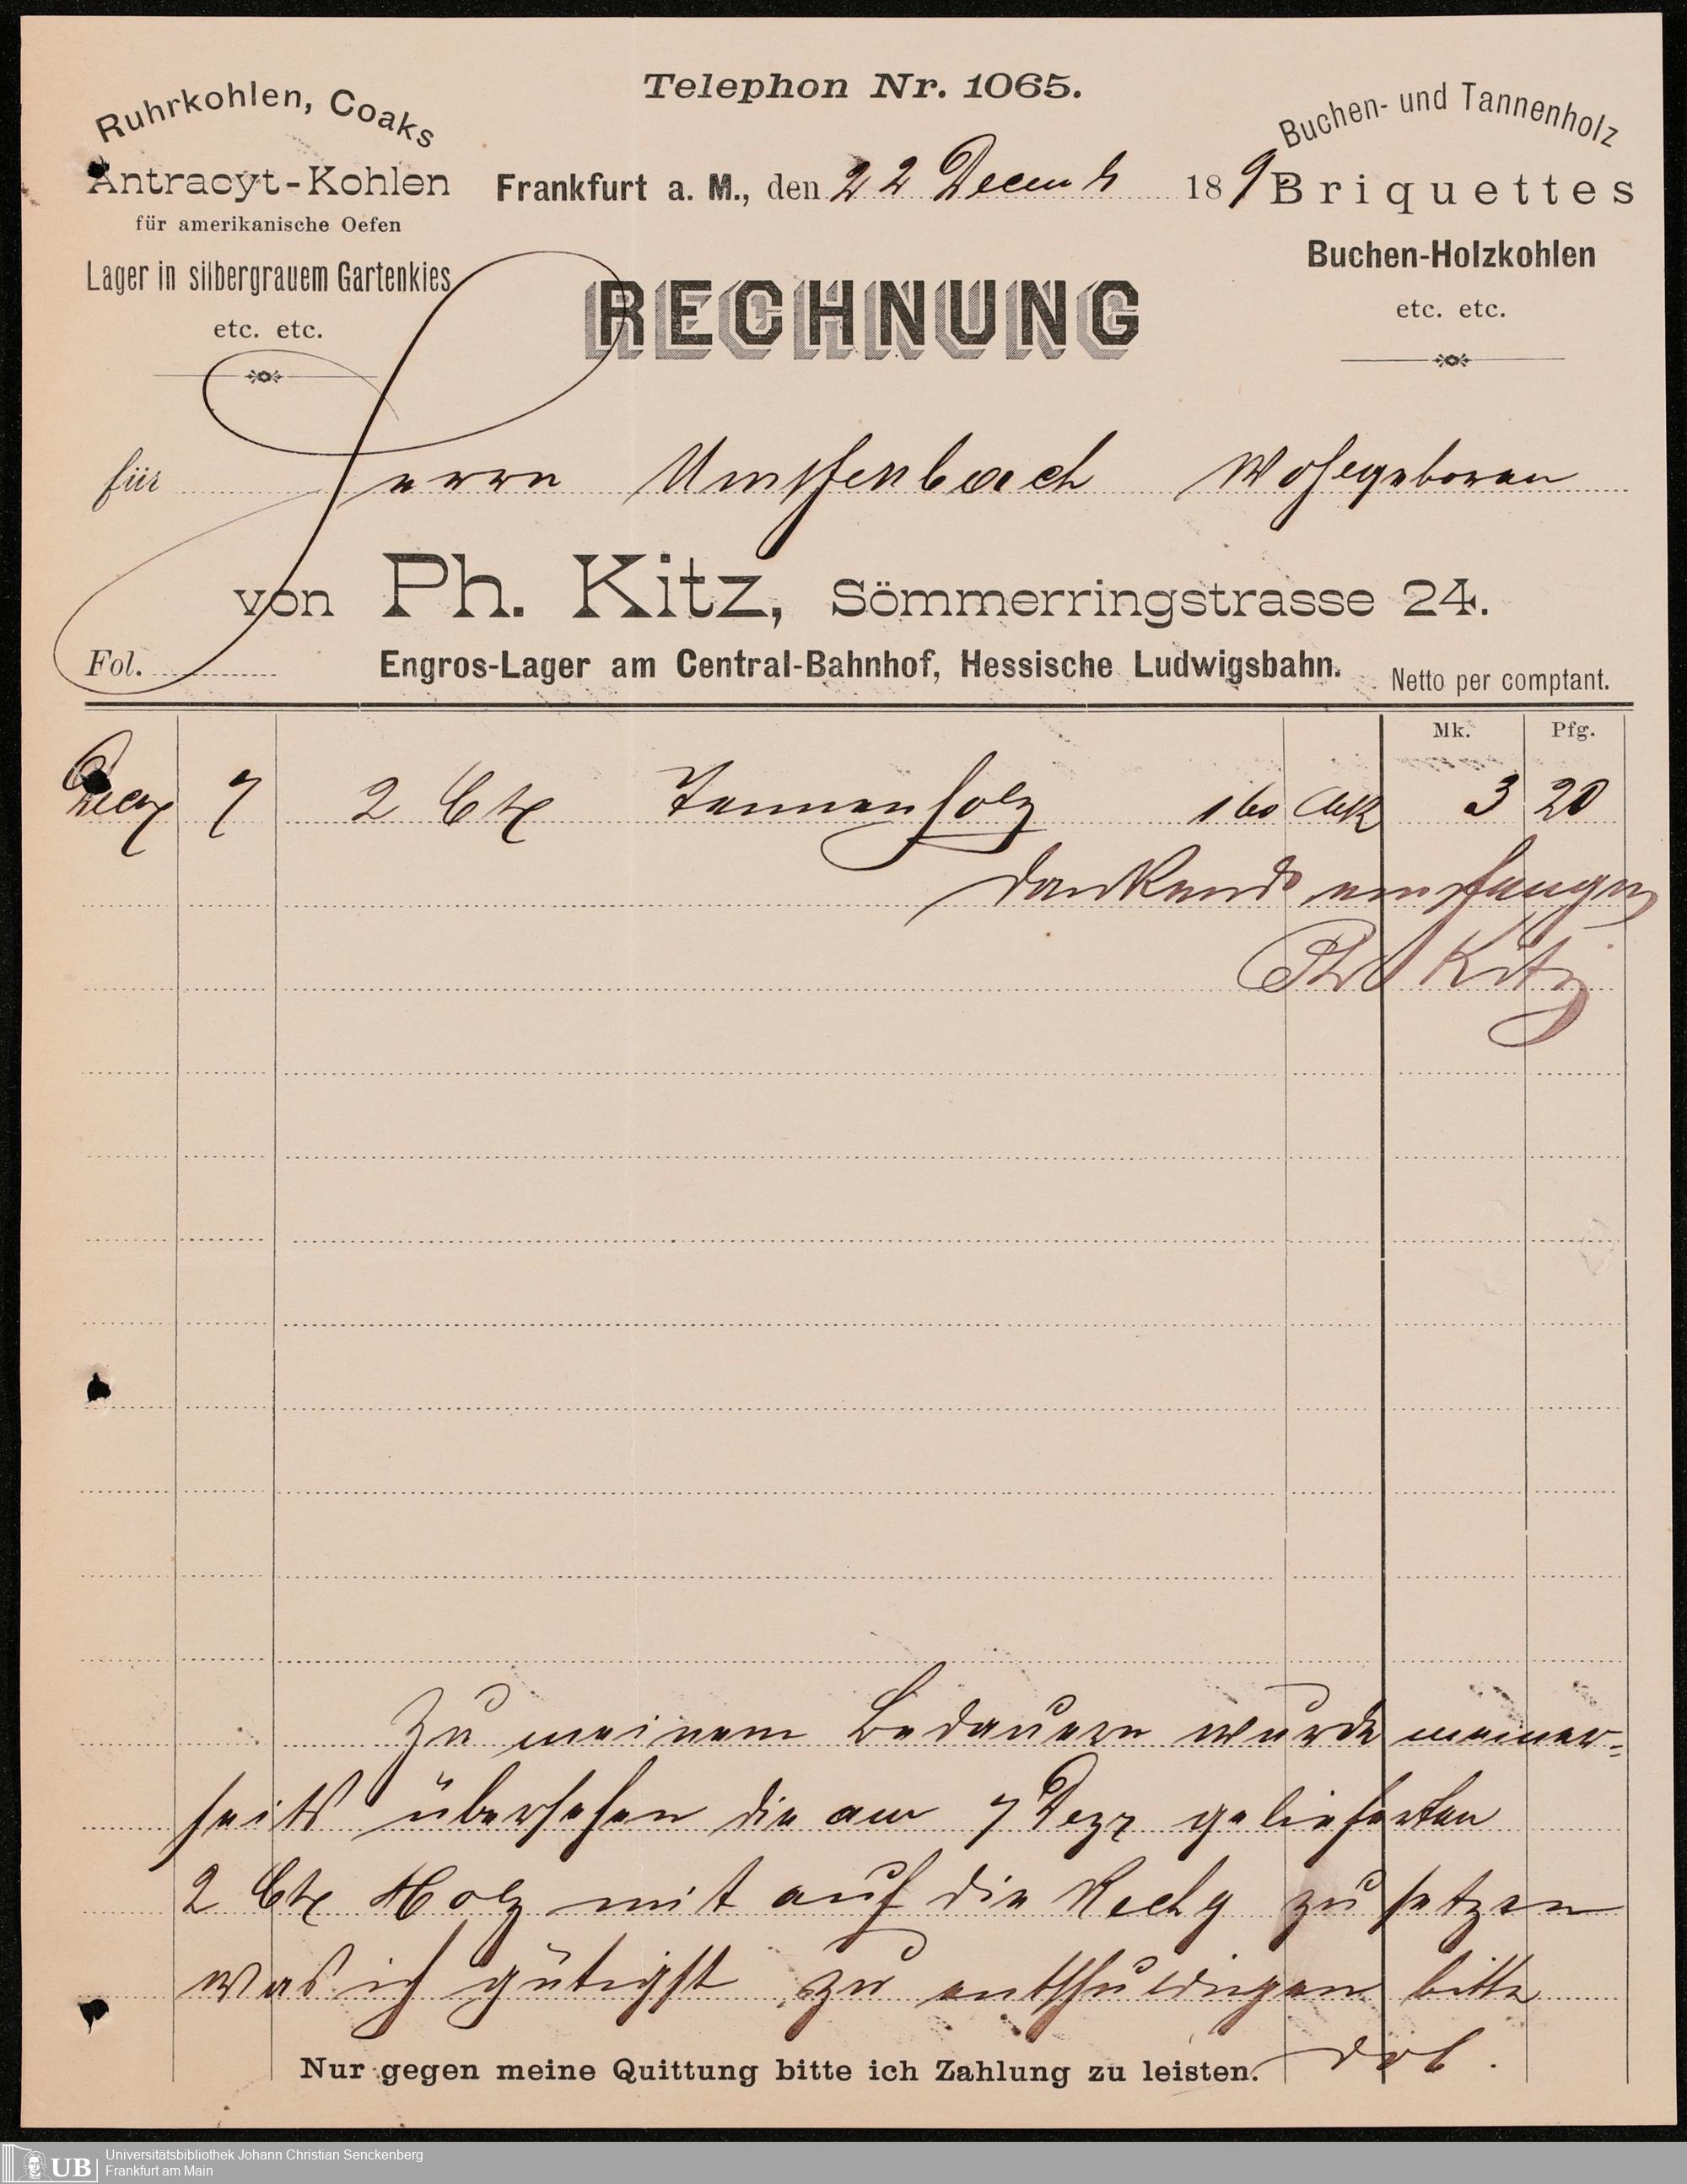 Telephon Nr. 1065.
Ruhrkohlen, Coaks
Antracyt-Kohlen
für amerikanische Oefen
Lager in silbergrauem Gartenkies
etc. etc.
Buchen- und Tannenholz
Briquettes
Buchen-Holzkohlen
etc. etc.
Frankfurt a. M., den 22 Decemb 189
RECHNUNG
für Herrn Umpfenbach Wohlgeboren
von Ph. Kitz, Sömmerringstrasse 24.
Fol. Engros-Lager am Central-Bahnhof, Hessische Ludwigsbahn. Netto per comptant.
Mk. Pfg.
7 2 Ctr Tannenholz 160 3 20
dankend empfangen
Ph Kitz
Zu meinem Bedauern wurde meiner-
seits übersehen die am 7 Dezr gelieferten
2 Ctr Holz mit auf die Rechg zu setzen
was ich gütigst zu entschuldigen bitte
Nur gegen meine Quittung bitte ich Zahlung zu leisten. dob.
UB Universitätsbibliothek Johann Christian Senckenberg
Frankfurt am Main